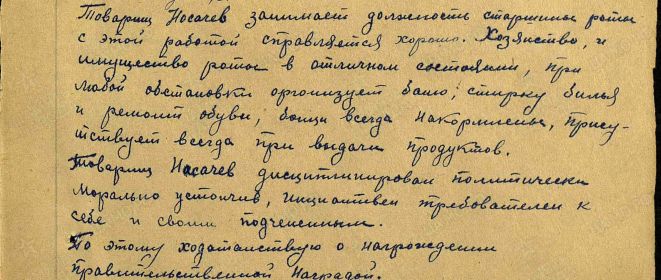 Товарищ Носачев занимает должность старшины роты
с этой работой справляется хорошо. Хозяйство, и
имущество роты в отличном состоянии, при
любой обстановки организует баню, стирку билья
и ремонт обуви, бойцы всегда накормлены, прису-
тствует всегда при выдачи продуктов.
Товарищ Носачев дисциплинирован политически
морально устойчив, инциативен требователен к
себе и своим подчененным.
По этому ходотайствую о награждении
правительственной наградой.